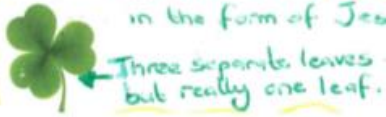 in the form of Jes
Three separate leaves -
but really one leaf.